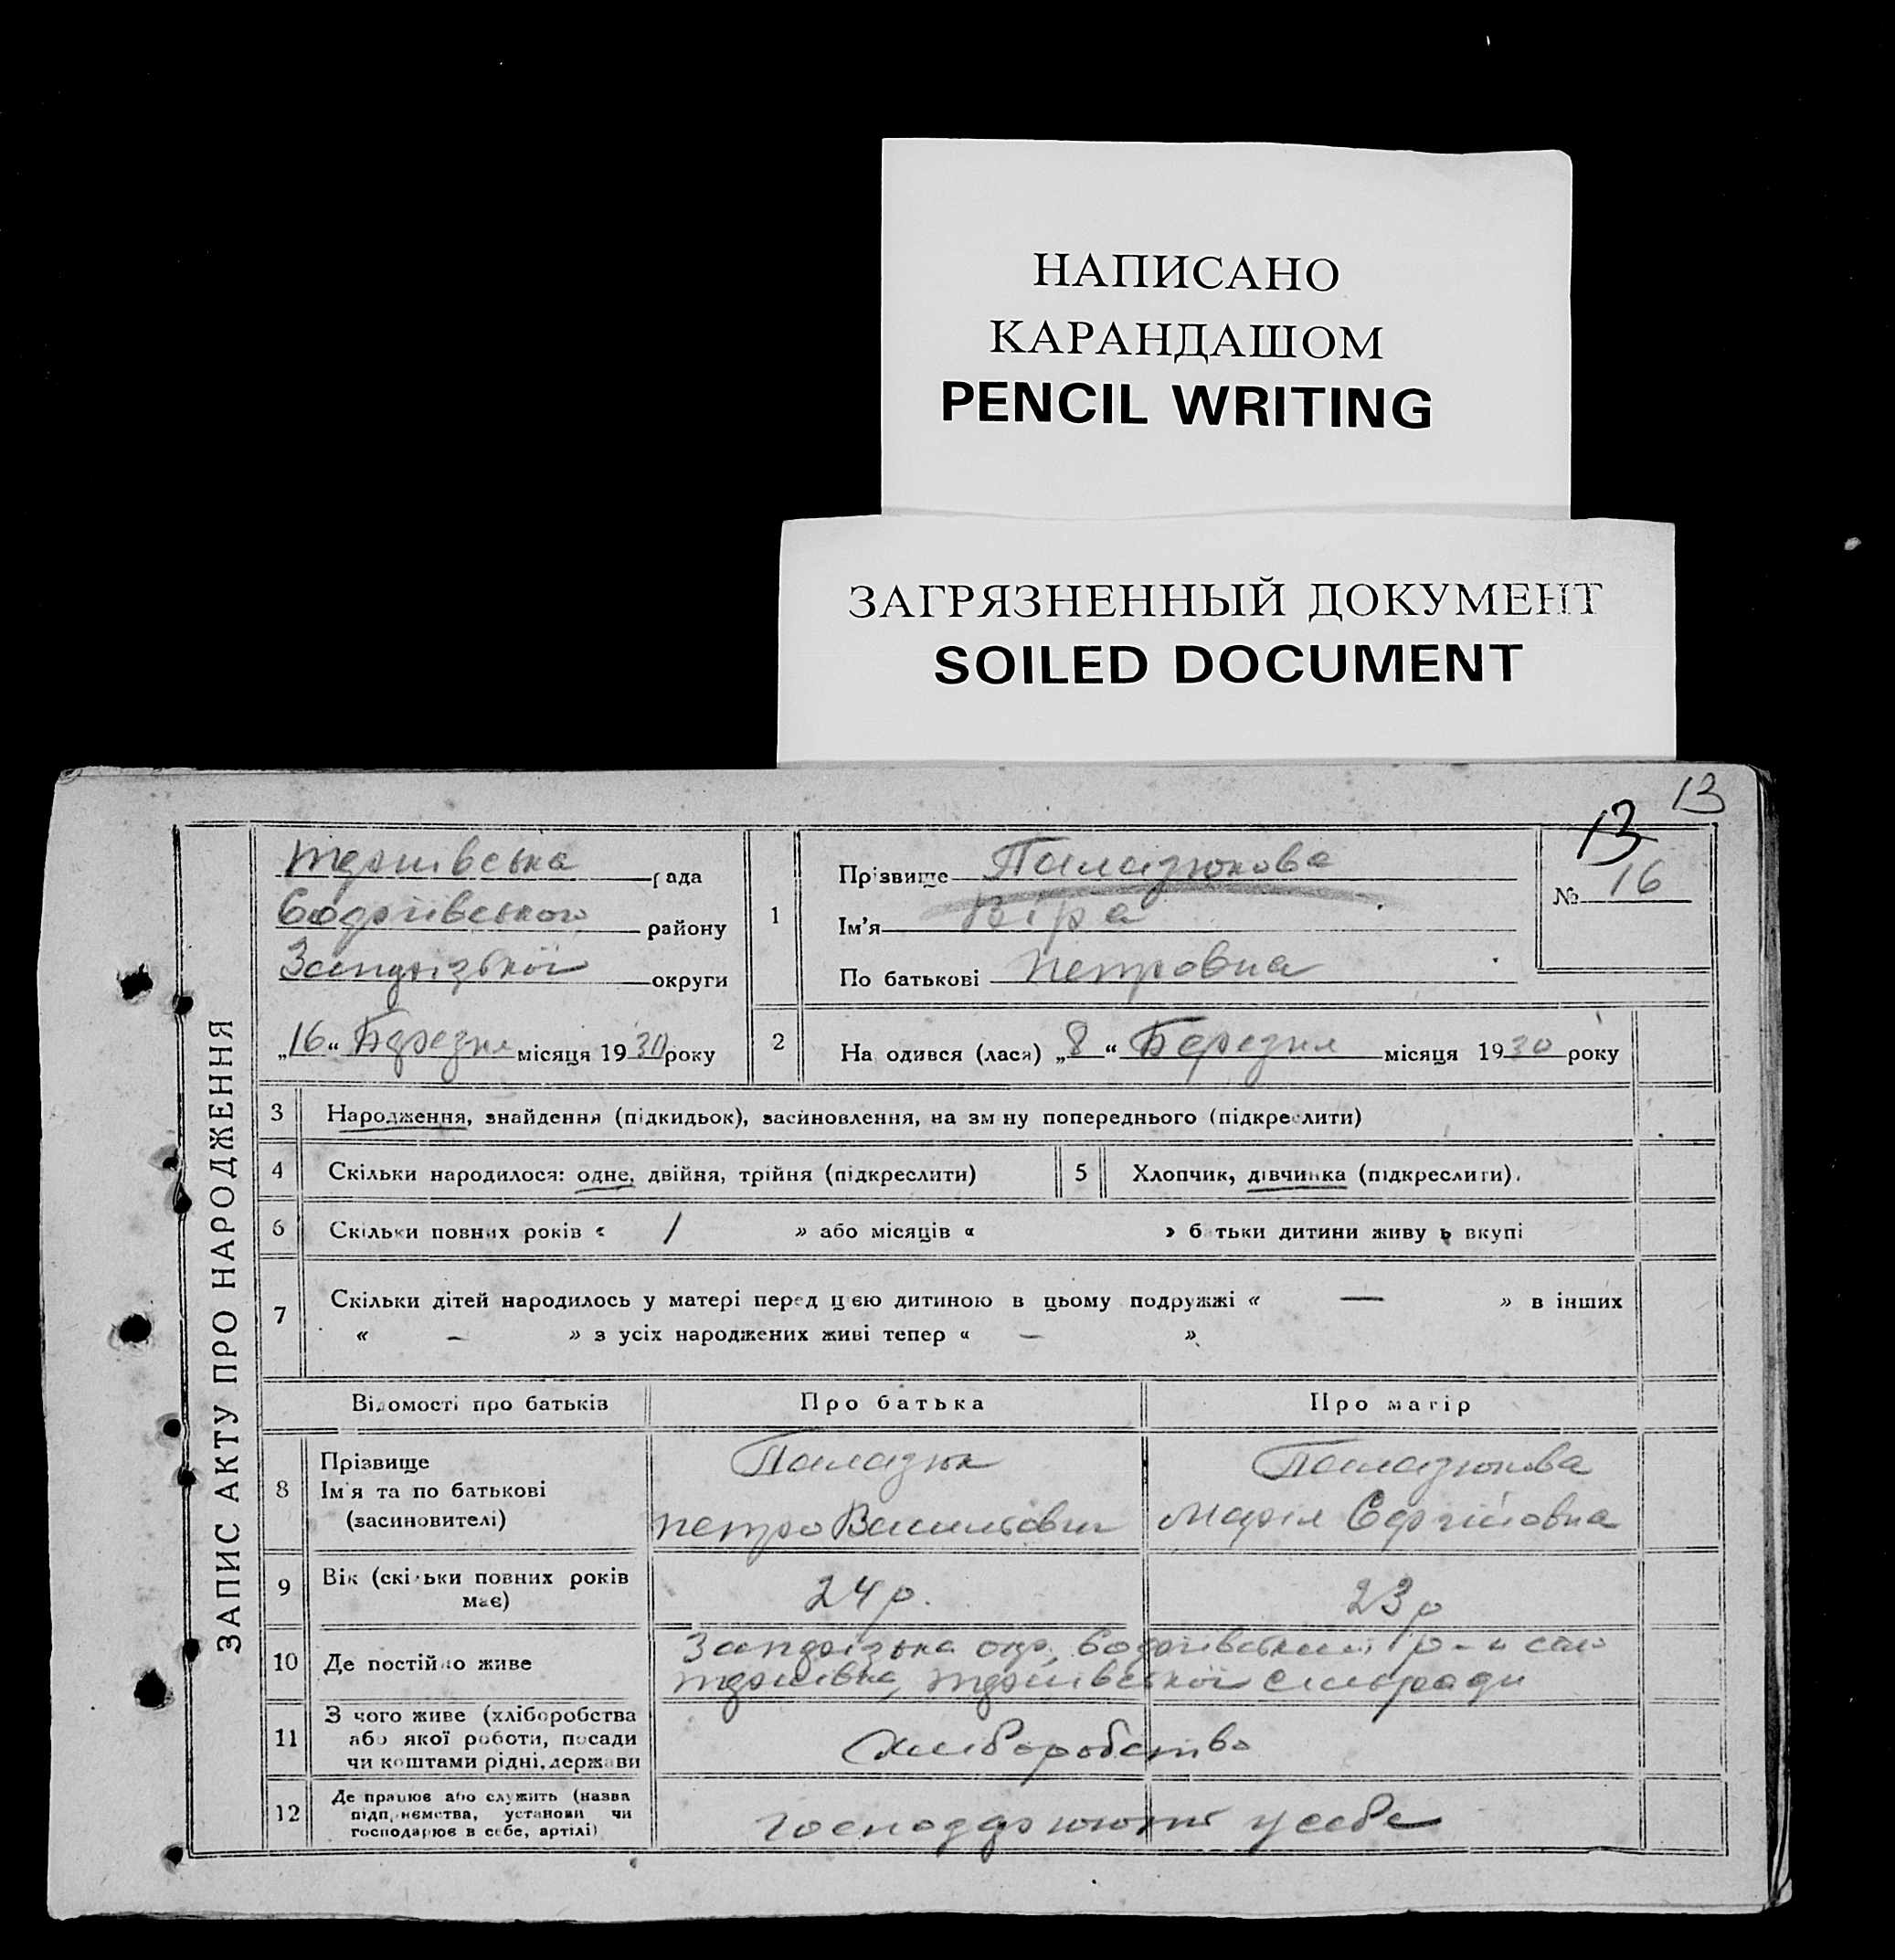 НАПИСАНО
КАРАНДАШОМ
PENCIL WRITING
ЗАГРЯЗНЕННЫЙ ДОКУМЕНТ
SOILED DOCUMENT
13
13
ЗАПИС АКТУ ПРО НАРОДЖЕННЯ
рада
району
округи
„16“ Березня місяця 1930 року
1
Прізвище Палазюкова
Ім'я Віра
По батькові Петровна
№ 16
2
На одився (лася) „8“ Березня місяця 1930 року
3 Народження, знайдення (підкидьок), засиновлення, на зм ну попереднього (підкреслити)
4 Скільки народилося: одне, двійня, трійня (підкреслити) 5 Хлопчик, дівчинка (підкреслити).
6 Скільки повних років « / » або місяців « » б тьки дитини живу ь вкупі
7 Скільки дітей народилось у матері перед цією дитиною в цьому подружжі « — » в інших
« – » з усіх народжених живі тепер « – »
Відомості про батьків Про батька Про матір
8 Прізвище
Ім'я та по батькові
(засиновителі)
Палазюк
Петро Васильович
Палазюкова
Марія Сергійовна
9 Вік (скільки повних років
має)
24 р. 23 р
10 Де постійно живе
окр, р-н село
сільради
11 З чого живе (хліборобства
або якої роботи, посади
чи коштами рідні, держави
Хліборобство
12 Де працює або служить (назва
підп, немства, установи чи
господарює в себе, артілі)
господарюють у себе